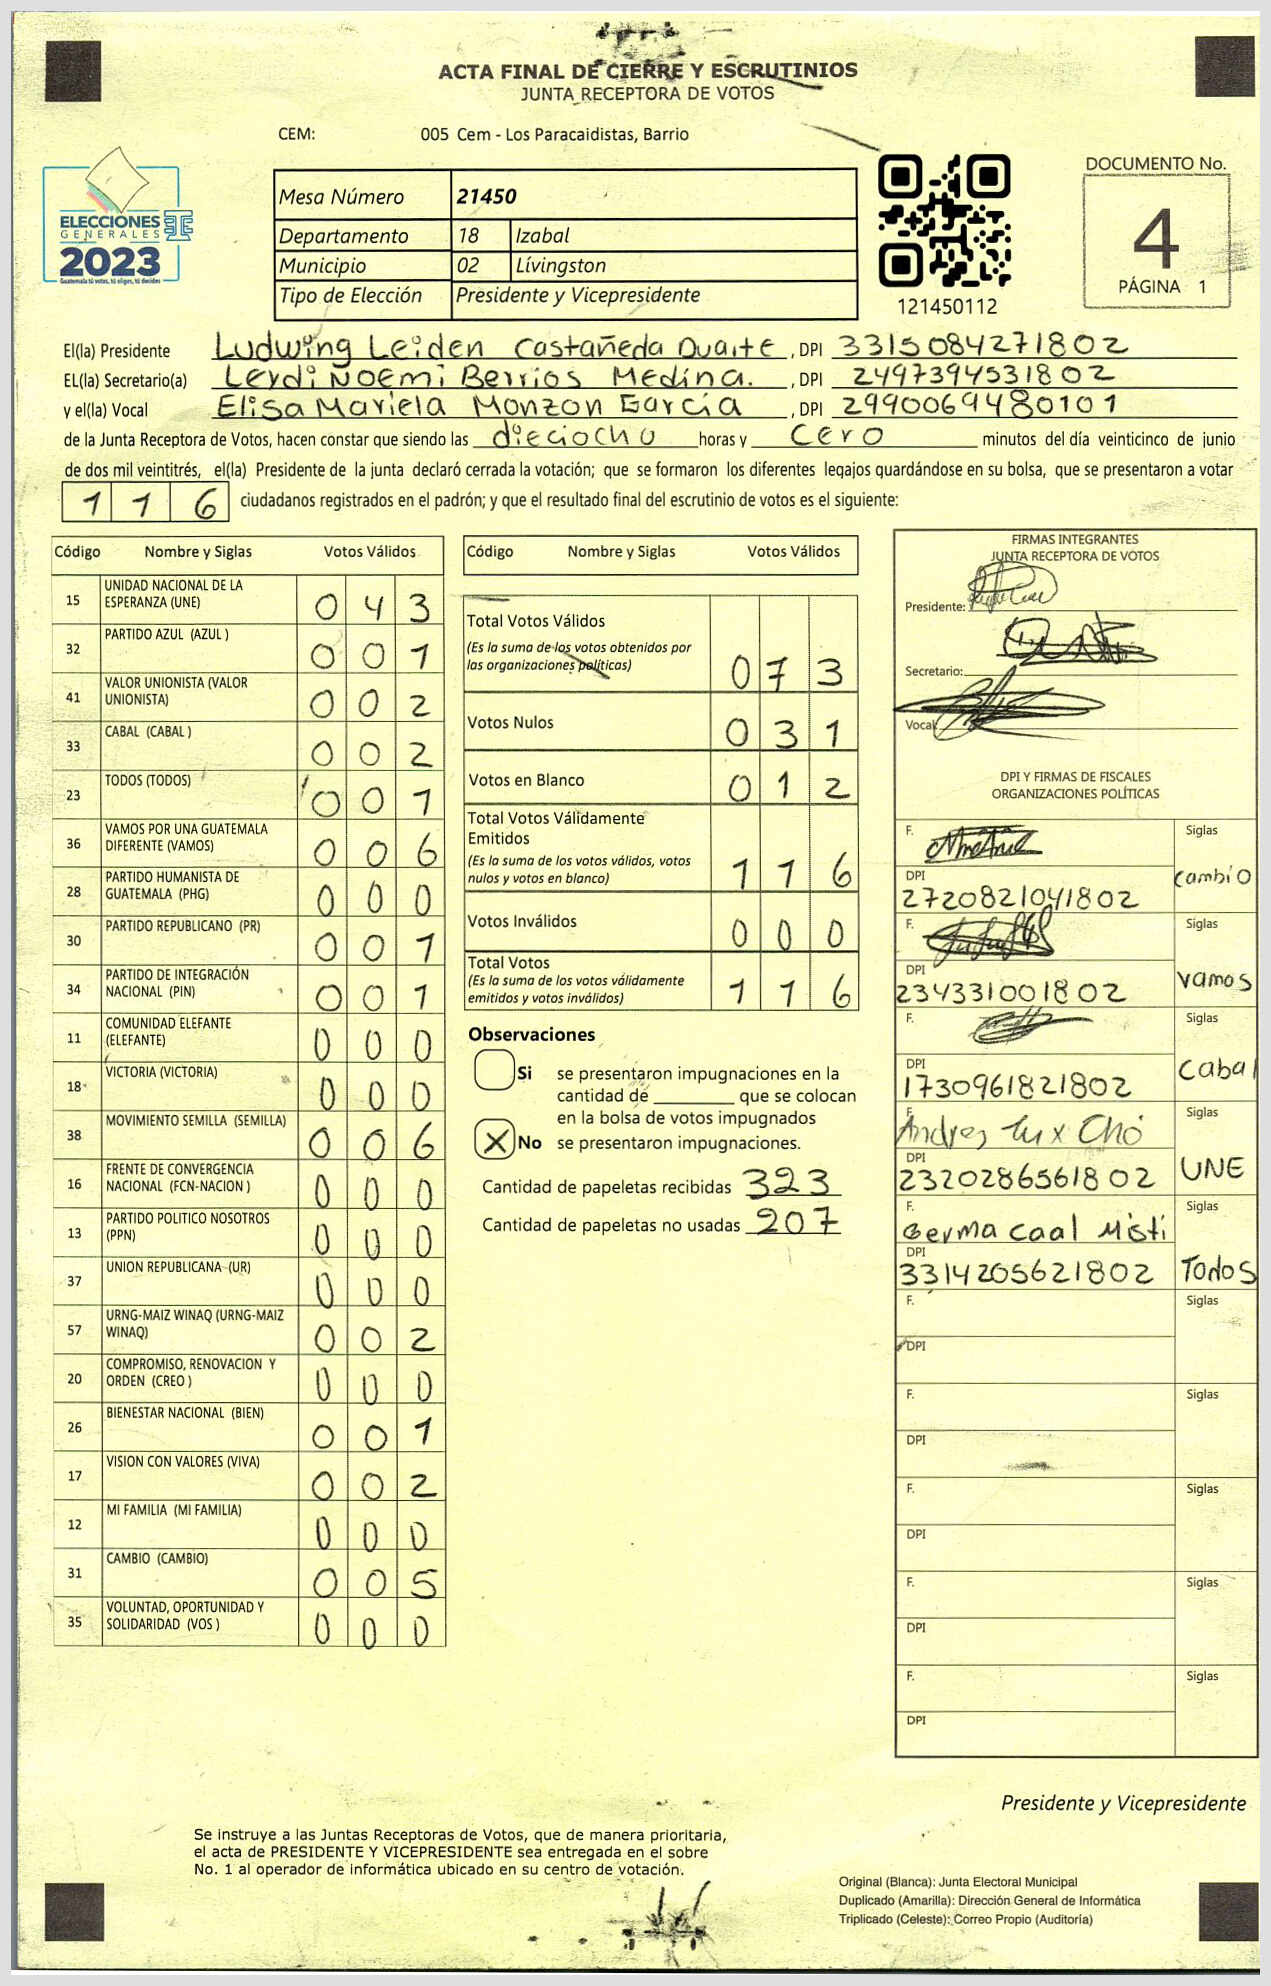 ACTA FINAL DE CIERRE Y ESCRUTINIOS
JUNTA RECEPTORA DE VOTOS
CEM: 005 Cem - Los Paracaidistas, Barrio
ELECCIONES
GENERALES
2023
Guatemala tú votas, tú eliges, tú decides
Mesa Número 21450
Departamento 18 Izabal
Municipio 02 Lívingston
Tipo de Elección Presidente y Vicepresidente
121450112
DOCUMENTO No.
4
PÁGINA 1
El(la) Presidente Ludwing Leiden Castañeda Duarte, DPI 3315084271802
EL(la) Secretario(a) Leydi Noemi Berrios Medina., DPI 2497394531802
y el(la) Vocal Elisa Mariela Monzon García, DPI 2990069480101
de la Junta Receptora de Votos, hacen constar que siendo las dieciocho horas y cero minutos del día veinticinco de junio
de dos mil veintitrés, el(la) Presidente de la junta declaró cerrada la votación; que se formaron los diferentes legajos quardándose en su bolsa, que se presentaron a votar
116 ciudadanos registrados en el padrón; y que el resultado final del escrutinio de votos es el siguiente:
Código Nombre y Siglas Votos Válidos
15 UNIDAD NACIONAL DE LA ESPERANZA (UNE) 043
32 PARTIDO AZUL (AZUL ) 001
41 VALOR UNIONISTA (VALOR UNIONISTA) 002
33 CABAL (CABAL ) 002
23 TODOS (TODOS) 001
36 VAMOS POR UNA GUATEMALA DIFERENTE (VAMOS) 006
28 PARTIDO HUMANISTA DE GUATEMALA (PHG) 000
30 PARTIDO REPUBLICANO (PR) 001
34 PARTIDO DE INTEGRACIÓN NACIONAL (PIN) 001
11 COMUNIDAD ELEFANTE (ELEFANTE) 000
18 VICTORIA (VICTORIA) 000
38 MOVIMIENTO SEMILLA (SEMILLA) 006
16 FRENTE DE CONVERGENCIA NACIONAL (FCN-NACION ) 000
13 PARTIDO POLITICO NOSOTROS (PPN) 000
37 UNION REPUBLICANA (UR) 000
57 URNG-MAIZ WINAQ (URNG-MAIZ WINAQ) 002
20 COMPROMISO, RENOVACION Y ORDEN (CREO ) 000
26 BIENESTAR NACIONAL (BIEN) 001
17 VISION CON VALORES (VIVA) 002
12 MI FAMILIA (MI FAMILIA) 000
31 CAMBIO (CAMBIO) 005
35 VOLUNTAD, OPORTUNIDAD Y SOLIDARIDAD (VOS ) 000
Código Nombre y Siglas Votos Válidos
Total Votos Válidos 073
(Es la suma de los votos obtenidos por
las organizaciones políticas)
Votos Nulos 031
Votos en Blanco 012
Total Votos Válidamente
Emitidos 116
(Es la suma de los votos válidos, votos
nulos y votos en blanco)
Votos Inválidos 000
Total Votos 116
(Es la suma de los votos válidamente
emitidos y votos inválidos)
Observaciones
Si se presentaron impugnaciones en la
cantidad de ________ que se colocan
en la bolsa de votos impugnados
X No se presentaron impugnaciones.
Cantidad de papeletas recibidas 323
Cantidad de papeletas no usadas 207
FIRMAS INTEGRANTES
JUNTA RECEPTORA DE VOTOS
Presidente:
Secretario:
Vocal:
DPI Y FIRMAS DE FISCALES
ORGANIZACIONES POLÍTICAS
F. Siglas
DPI 2720821041802 cambio
F. Siglas
DPI 2343310018 02 vamos
F. Siglas
DPI 1730961821802 Cabal
F. Andres Tux Chó Siglas
DPI 2320286561802 UNE
F. Germa Caal Misti Siglas
DPI 3314205621802 Todos
F. Siglas
DPI
F. Siglas
DPI
F. Siglas
DPI
F. Siglas
DPI
F. Siglas
DPI
Presidente y Vicepresidente
Se instruye a las Juntas Receptoras de Votos, que de manera prioritaria,
el acta de PRESIDENTE Y VICEPRESIDENTE sea entregada en el sobre
No. 1 al operador de informática ubicado en su centro de votación.
Original (Blanca): Junta Electoral Municipal
Duplicado (Amarilla): Dirección General de Informática
Triplicado (Celeste): Correo Propio (Auditoría)